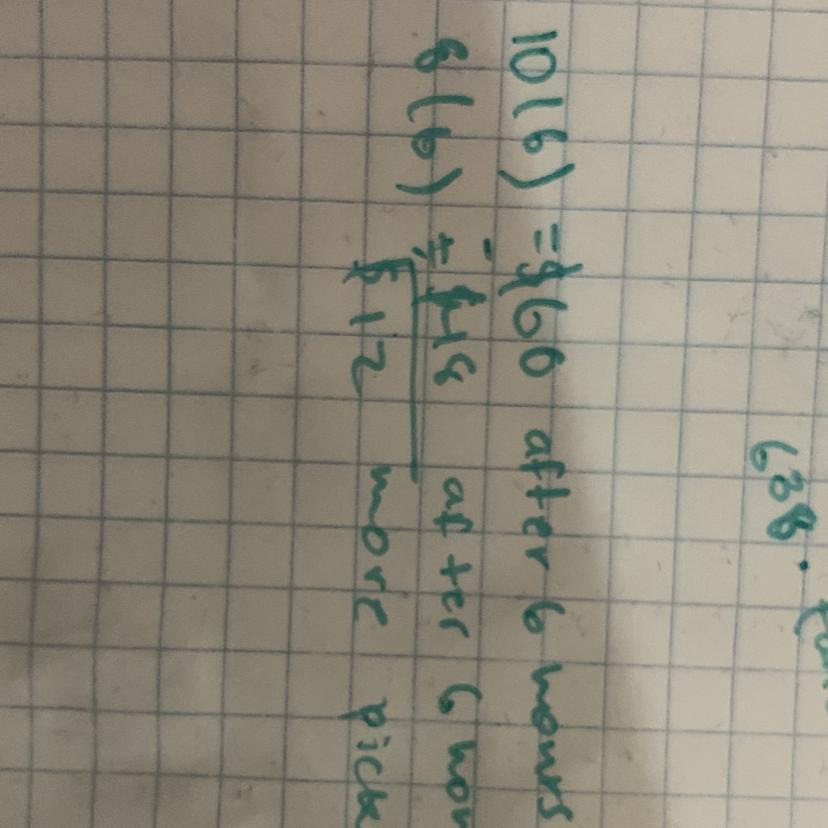 638.
10(6) = $60 after 6 hours
8(6) = - $48 after 6 hou
$12 more pick